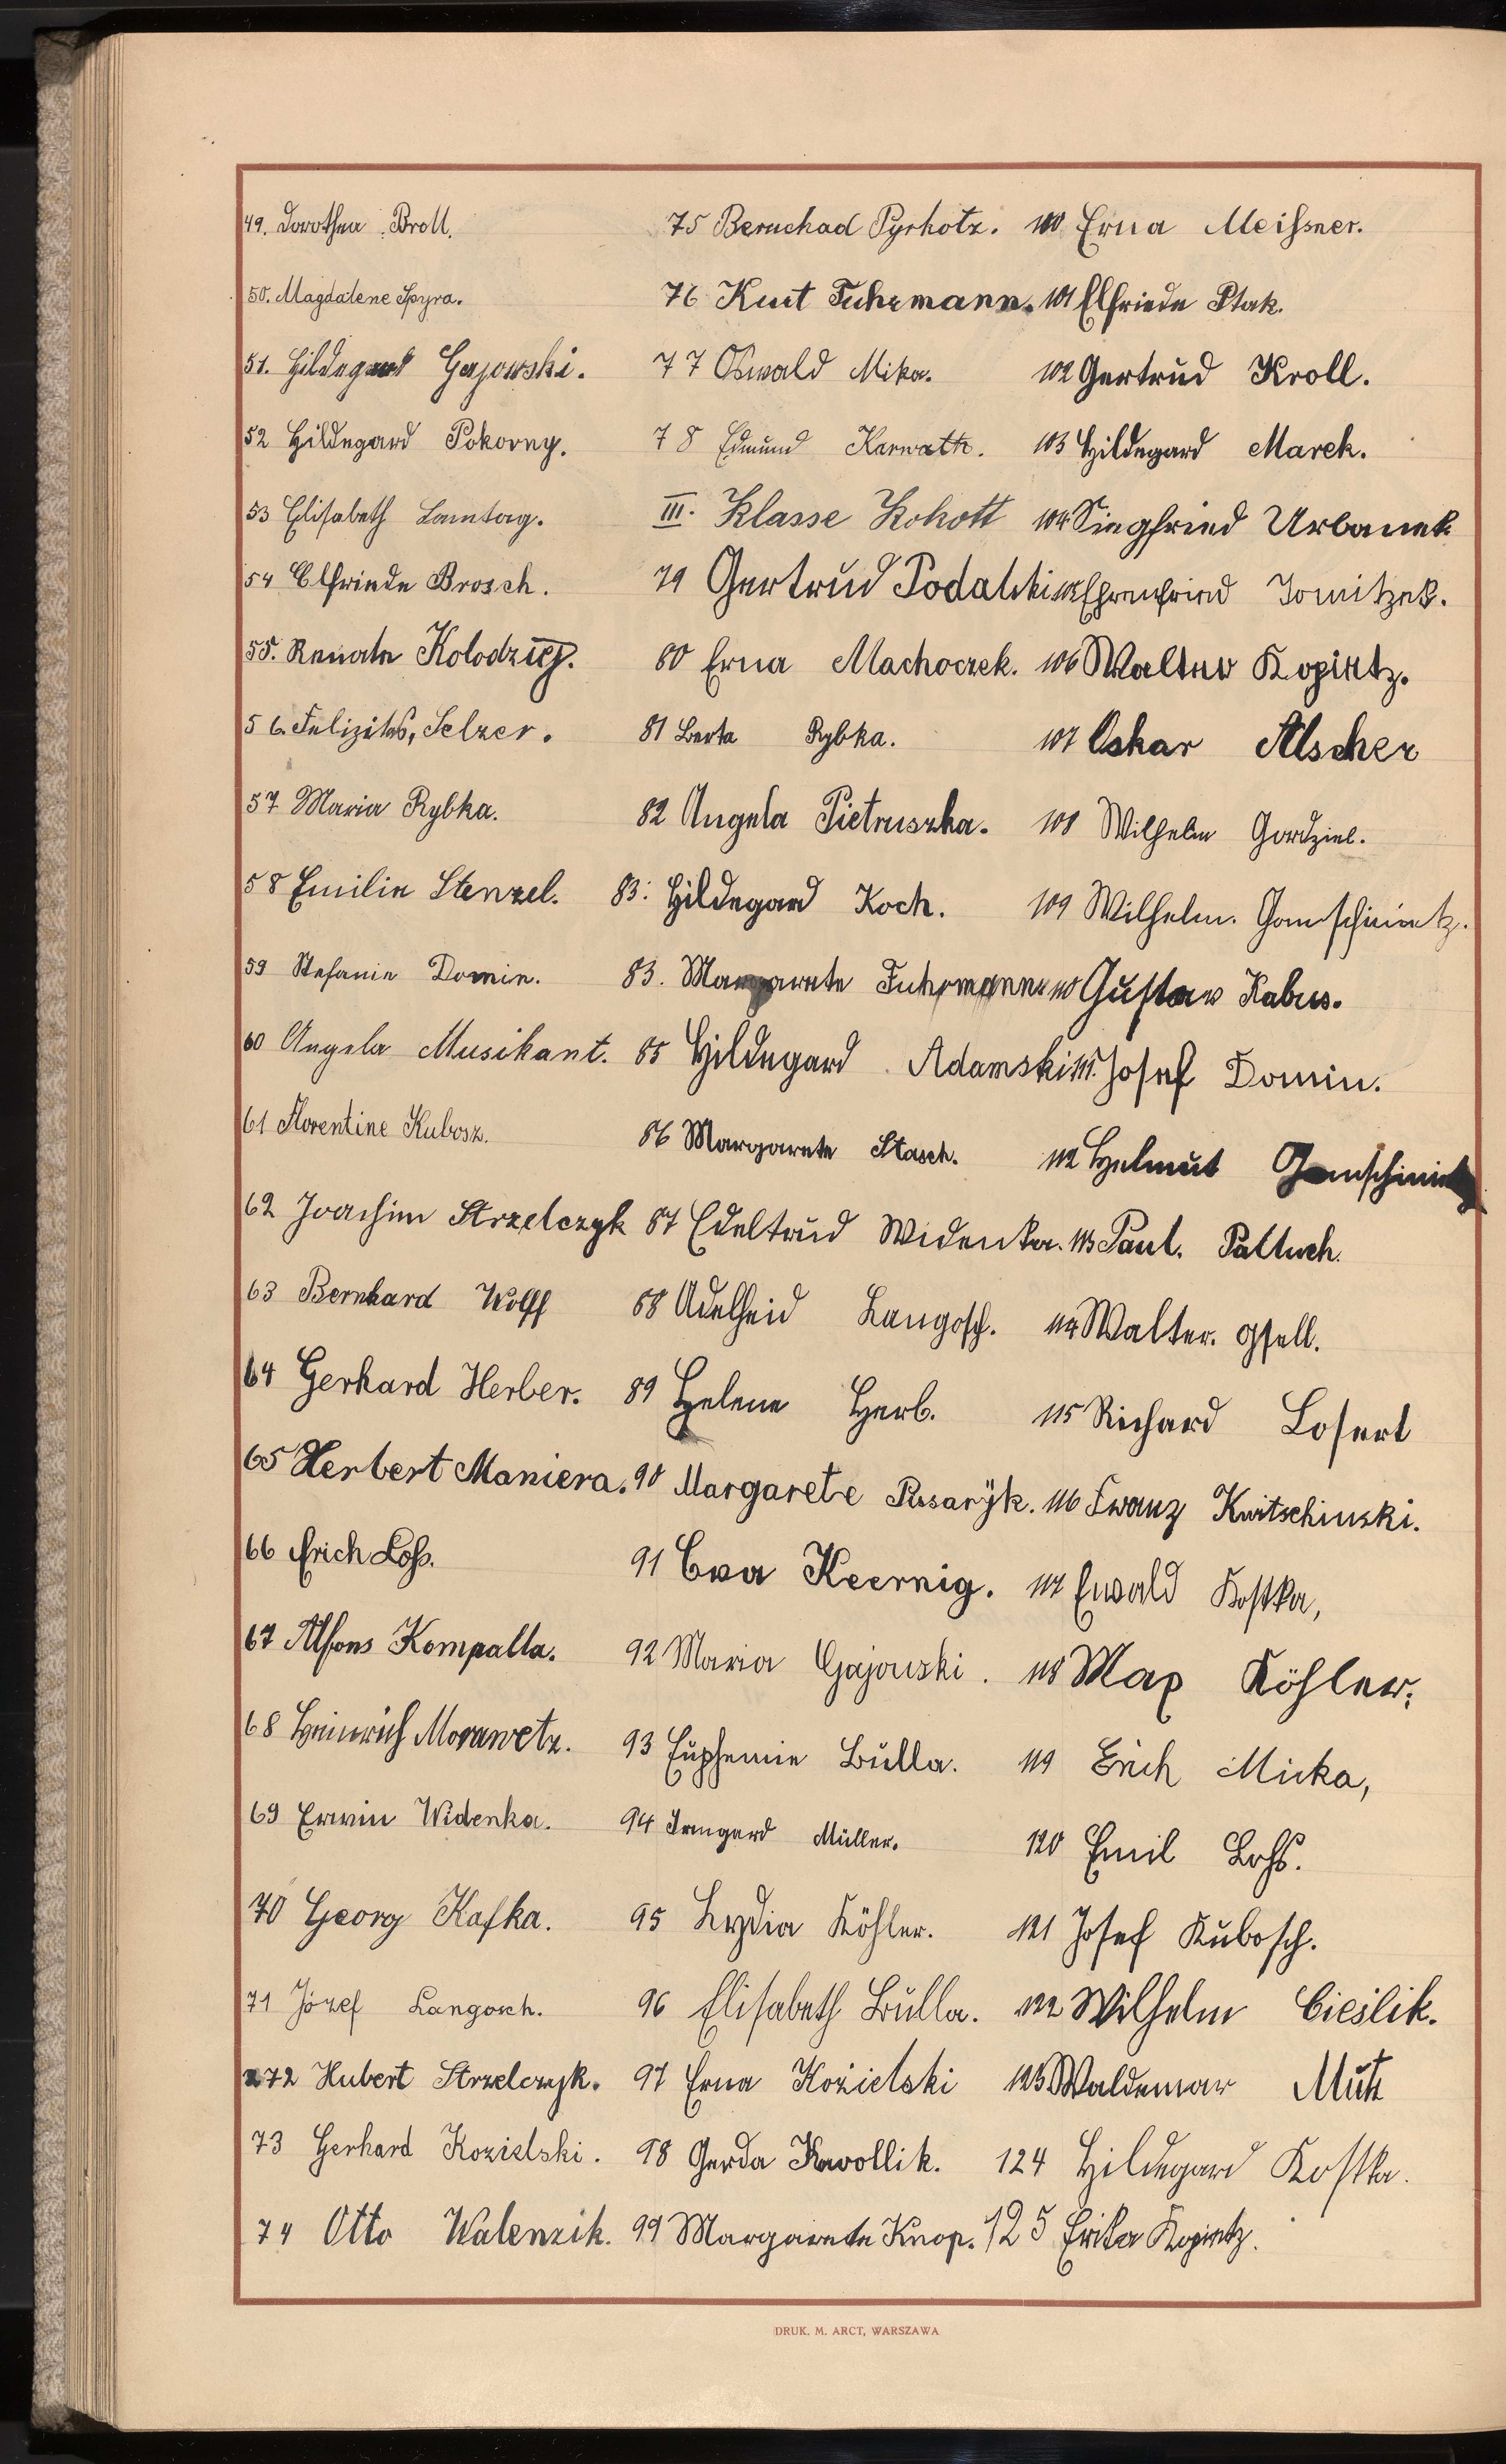 49. Dorothea Broll.
50. Magdalene Spyra.
51. Hildegard Gajowski.
52 Hildegard Pokorny.
53 Elisabeth Lamtag.
54 Elfriede Brosch.
55. Renate Kolodziej.
56. Felizitas, Selzer.
57 Maria Rybka.
58 Emilie Stenzel.
59 Stefanie Domin.
60 Angela Musikant.
61 Florentine Kubosz.
62 Joachim Strzelczyk
63 Bernhard Wolff
64 Gerhard Herber.
65 Herbert Maniera.
66 Erich Loß.
67 Alfons Kompalla.
68 Heinrich Morawetz.
69 Erwin Widenka.
70 Georg Kafka.
71 Józef Langosch.
72 Hubert Strzelczyk.
73 Gerhard Kozielski.
74 Otto Walenzik.
75 Beruchad Pyrhotz.
76 Kurt Fuhrmann.
77 Oswald Mika.
78 Edmund Karwath.
III. Klasse Kokott
79 Gertrud
80 Erna Machoczek.
81 Berta Rybka.
82 Angela Pietruszka.
83: Hildegard Koch.
83. Margarete Fuhrmann
85 Hildegard Adamski
86 Margarete Stasch.
87 Edeltrud Widenka.
88 Adelheid Langosch.
89 Helene Herb.
90 Margarete
91 Eva Keernig.
92 Maria Gajowski.
93 Euphemie Bulla.
94 Irmgard Müller.
95 Lydia Köhler.
96 Elisabeth Bulla.
97 Erna Kozielski
98 Gerda Kawollik.
99 Margarete Knop.
100 Erna Meißner.
101 Elfriede Ptak.
102 Gertrud Kroll.
103 Hildegard Marek.
104 Siegfried Urbanek
105 Ehrenfried Tomitzek.
106 Walter Kopietz.
107 Oskar Alscher
108 Wilhelm Gordziel.
109 Wilhelm. Gomschinietz.
110 Gustav Kabus.
111. Josef Domin.
112 Helmut Gomschinietz
113 Paul. Palluch.
114 Walter. Gsell.
115 Richard Losert
116 Franz Kwitschinski.
117 Ewald Kostka,
118 Max Köhler.
119 Erich Micka,
120 Emil Lohs.
121 Josef Kubosch.
122 Wilhelm Cieślik.
123 Waldemar Mutz
124 Hildegard Kostka.
125 Erika Kopietz.
DRUK. M. ARCT, WARSZAWA